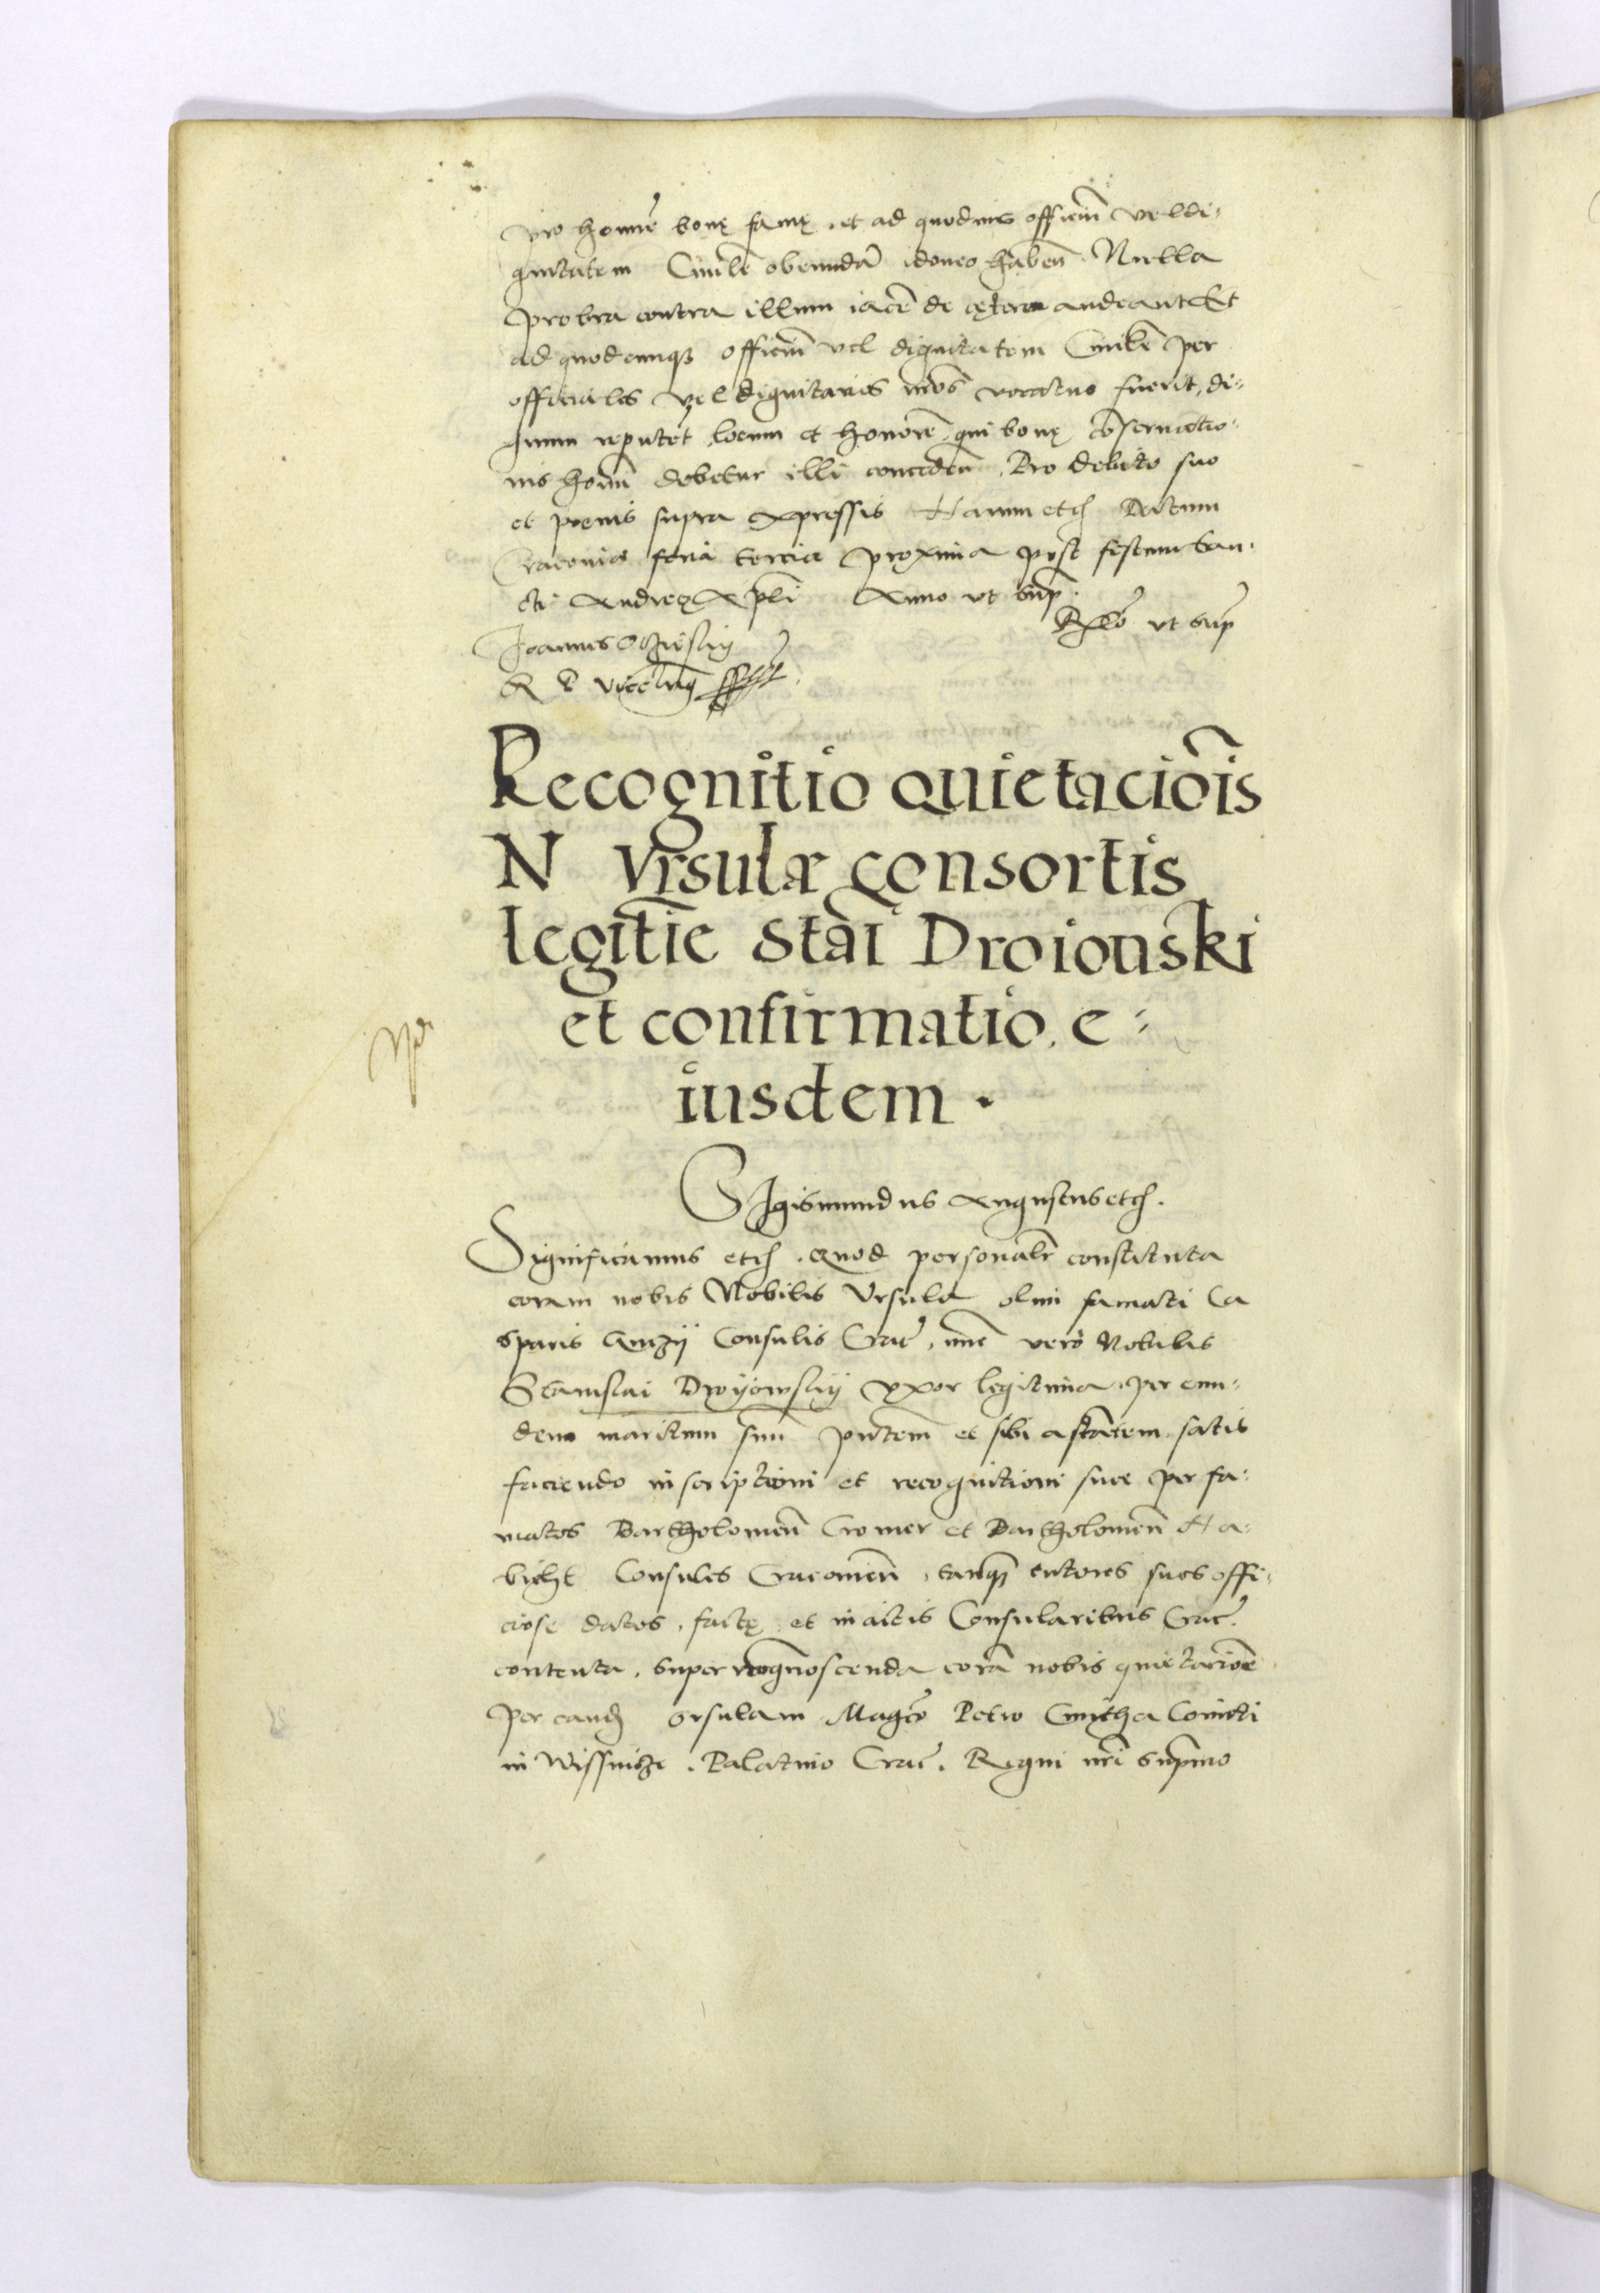 pro homine bonę famę, et ad quoduis officiū vel di-
gnitatem Ciuilē obeundā idoneo haben̄. Nulla
probra contra illum iacē de cętero audeant Et
ad quodcunq officiū vel dignitatem Ciuilē per
officiales vel dignitarios vr̄os vocatus fuerit, di-
gnum reputet, locum et honorē, qui bonę cōseruatio-
nis hoīm debetur illi conceden̄. Pro debito suo
et poenis supra expressis Harum etc̄ Datum
Cracouiae feria tercia proxima post festum San-
cti Andreę Apl̄i Anno vt supr
Rel̄o vt supr
Joannes Oczieskij
R P vicecan̄
Recognitio quietaciōis
N Vrsulæ consortis
legitīe Stāi Droiouski
et confirmatio e-
iusdem .
SIgismundus Augustus etc̄.
Significamus etc̄. Quod personalr̄ constituta
coram nobis Nobilis Vrsula olim famati Ca
sparis Consulis Crac̄, nūc vero Nobilis
Stanislai Droyowskij vxor legitima, per eun-
dem maritum suū pn̄tem et sibi astan̄tem, satis
faciendo inscriptioni et recognitioni suae per fa-
matos Bartholomeū Cromer et Bartholomeū Ha-
bicht Consules Cracouien̄, tanq̄ tutores suos offi-
ciose datos, factę, et in actis Consularibus Crac̄.
contenta, super recognoscenda corā nobis quietationē
per eand̄ Vrsulam Magco Petro Cmytha Comiti
in Wissnicze. Palatino Crac̄. Regni nr̄i Supmo